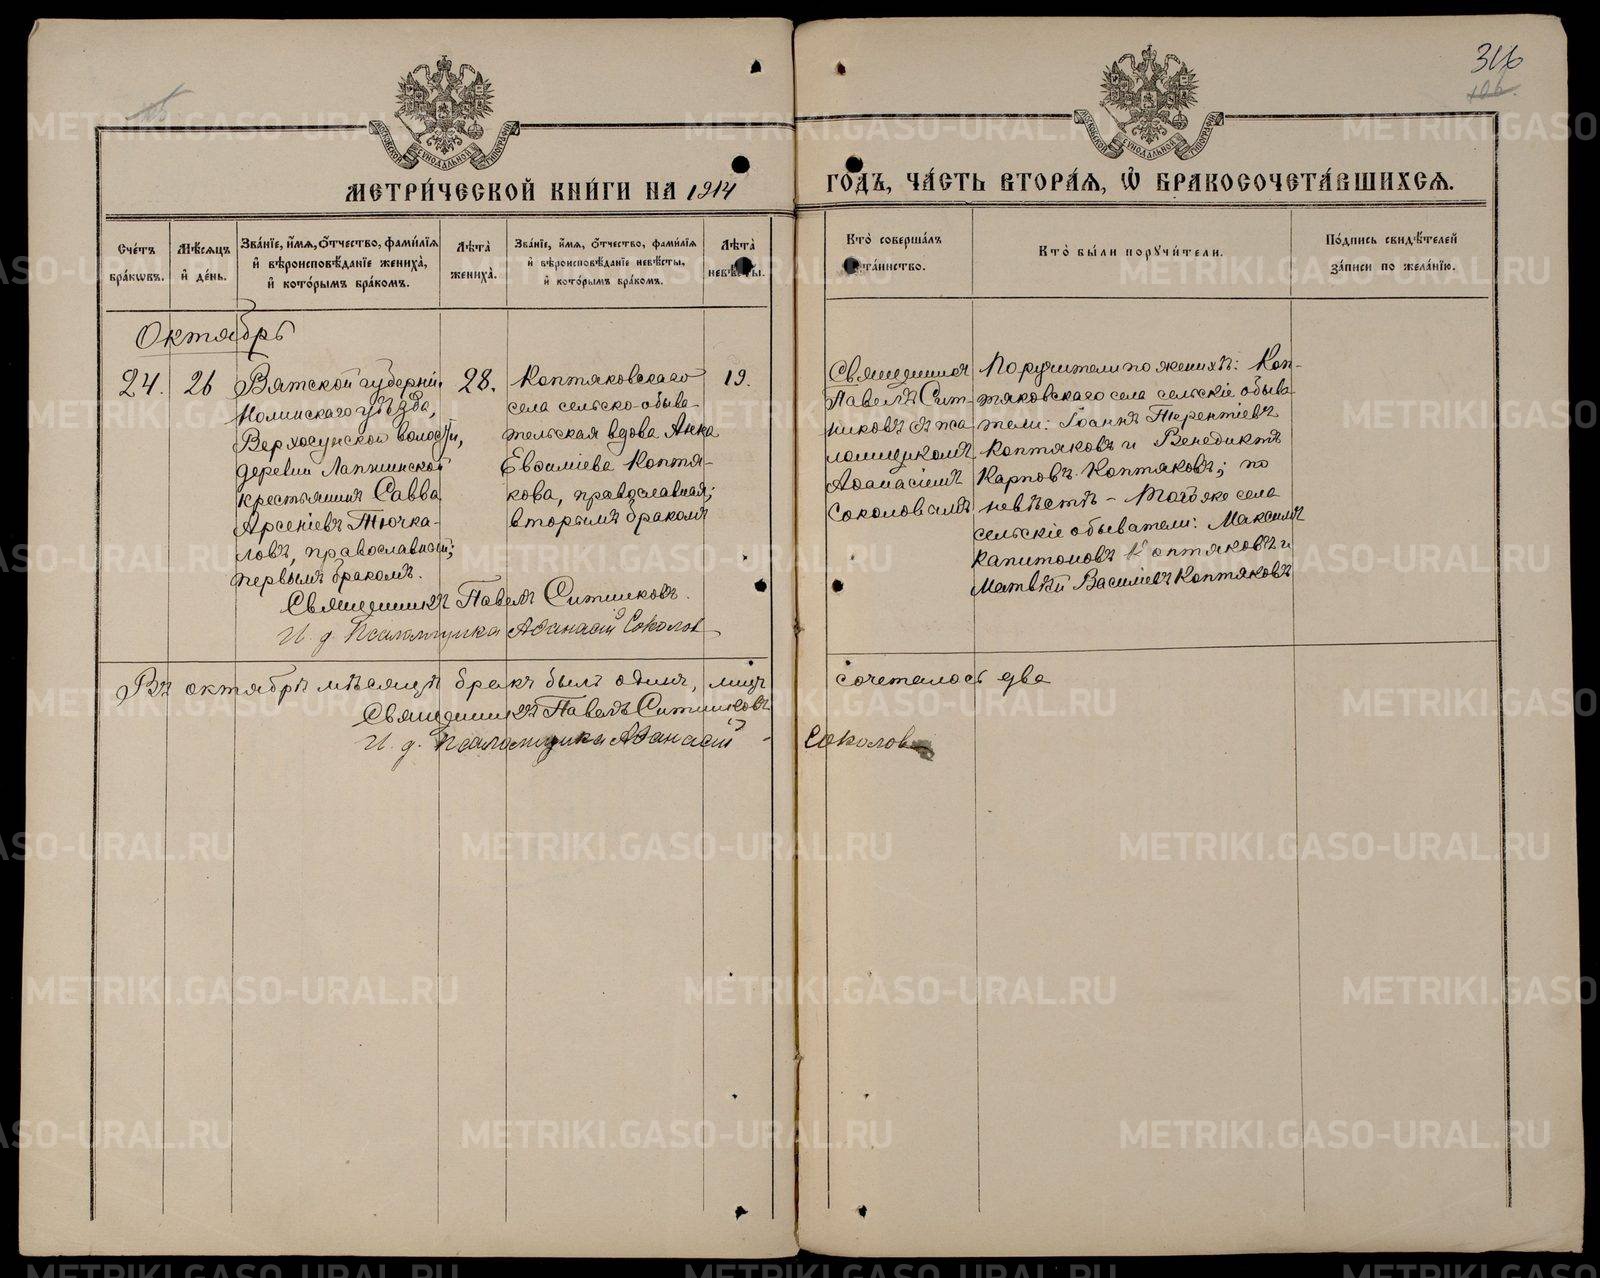 316
126.
МОСКОВСКОЙ СУНОДАЛЬНОЙ ТИПОГРАФІИ
МОСКОВСКОЙ СУНОДАЛЬНОЙ ТИПОГРАФІИ
МЕТРИ́ЧЕСКОЙ КНИ́ГИ НА 1914
ГО́ДЪ, ЧА́СТЬ ВТОРА́Я, Ѽ БРАКОСОЧЕТА́ВШИХСЯ.
Сче́тъ бра́кѡвъ.
Мѣ́сяцъ и҆ де́нь.
Зва́нїе, и҆́мя, ѻ҆́тчество, фами́лїя и҆ вѣроисповѣ́данїе жениха̀, и҆ кото́рымъ бра́комъ.
Лѣ́та̀ жениха̀.
Зва́нїе, и҆́мя, ѻ҆́тчество, фами́лїя и҆ вѣроисповѣ́данїе невѣ́сты, и҆ кото́рымъ бра́комъ.
Лѣ́та̀ невѣ́сты.
Кто̀ соверша́лъ та́инство.
Кто̀ бы́ли порꙋчи́тели.
По́дпись свидѣ́телей за́писи по жела́нїю.
Октябрь
24.
26
Вятской губерніи
Нолинскаго уѣзда,
Верхосунской волости,
деревни Лапшинской
крестьянинъ Савва
Арсеніевъ Тючка-
ловъ, православный;
первымъ бракомъ.
28.
Коптяковскаго
села сельско-обыва-
тельская вдова Анна
Евѳиміева Коптя-
кова, православная;
вторымъ бракомъ
19.
Священникъ
Павелъ Сит-
никовъ съ пса
ломщикомъ
Аѳанасіемъ
Соколовымъ
Поручители по женихѣ: Коп-
тяковскаго села сельскіе обыва
тели: Іоаннъ Терентіевъ
Коптяковъ и Венедиктъ
Карповъ Коптяковъ; по
невѣстѣ – того же села
сельскіе обыватели: Максимъ
Капитоновъ Коптяковъ и
Матвѣй Василіевъ Коптяковъ
Священникъ Павелъ Ситниковъ.
И. д. Псаломщика Аѳанасій Соколов
Въ октябрѣ мѣсяцѣ бракъ былъ одинъ, лицъ сочеталось два
Священникъ Павелъ Ситниковъ
И. д. Псаломщика Аѳанасій - Соколов
METRIKI.GASO-URAL.RU